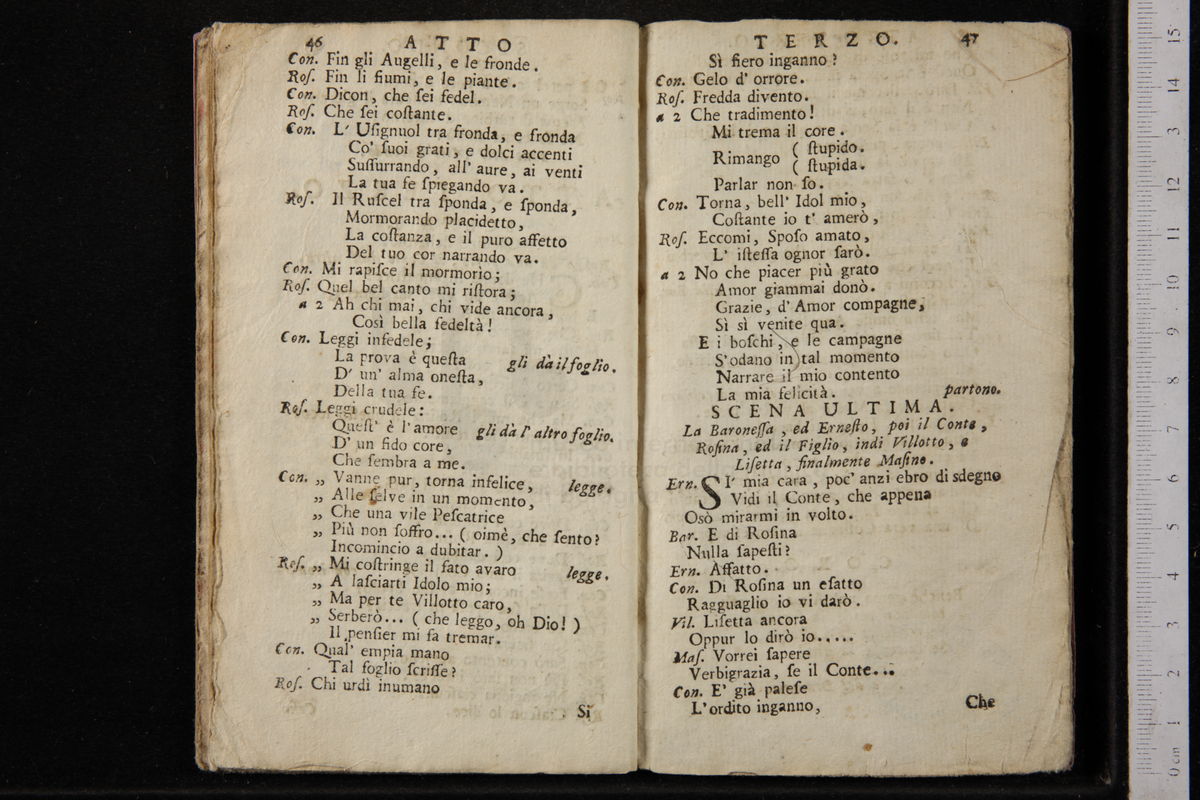 46 ATTO
Con. Fin gli Augelli, e le fronde.
Roſ. Fin li fiumi, e le piante.
Con. Dicon, che ſei fedel.
Roſ. Che ſei coſtante.
Con. L' Uſignuol tra fronda, e fronda
Co' ſuoi grati, e dolci accenti
Suſſurrando, all' aure, ai venti
La tua fe ſpiegando va.
Roſ. Il Ruſcel tra ſponda, e ſponda,
Mormorando placidetto,
La coſtanza, e il puro affetto
Del tuo cor narrando va.
Con. Mi rapiſce il mormorìo;
Roſ. Quel bel canto mi riſtora;
a 2 Ah chi mai, chi vide ancora,
Così bella fedeltà!
Con. Leggi infedele;
La prova è queſta gli dà il foglio.
D' un' alma oneſta,
Della tua fe.
Roſ. Leggi crudele:
Queſt' è l'amore gli dà l' altro foglio.
D' un fido core,
Che ſembra a me.
Con. „ Vanne pur, torna infelice, legge.
„ Alle ſelve in un momento,
„ Che una vile Peſcatrice
„ Più non ſoffro... ( oimè, che ſento?
Incomincio a dubitar. )
Roſ. „ Mi coſtringe il fato avaro legge.
„ A laſciarti Idolo mio;
„ Ma per te Villotto caro,
„ Serberò... ( che leggo, oh Dio! )
Il penſier mi fa tremar.
Con. Qual' empia mano
Tal foglio ſcriſſe?
Roſ. Chi urdì inumano
Sì
TERZO. 47
Sì fiero inganno?
Con. Gelo d' orrore.
Roſ. Fredda divento.
a 2 Che tradimento!
Mi trema il core.
Rimango ( ſtupido.
( ſtupida.
Parlar non ſo.
Con. Torna, bell' Idol mio,
Coſtante io t' amerò,
Roſ. Eccomi, Spoſo amato,
L' iſteſſa ognor ſarò.
a 2 No che piacer più grato
Amor giammai donò.
Grazie, d' Amor compagne,
Sì sì venite qua.
E i boſchi, e le campagne
S'odano in tal momento
Narrare il mio contento
La mia felicità. partono.
SCENA ULTIMA.
La Baroneſſa, ed Erneſto, poi il Conte,
Roſina, ed il Figlio, indi Villotto, e
Liſetta, finalmente Maſino.
Ern. SI' mia cara, poc' anzi ebro di sdegno
Vidi il Conte, che appena
Osò mirarmi in volto.
Bar. E di Roſina
Nulla ſapeſti?
Ern. Affatto.
Con. Di Roſina un eſatto
Ragguaglio io vi darò.
Vil. Liſetta ancora
Oppur lo dirò io.....
Maſ. Vorrei ſapere
Verbigrazia, ſe il Conte...
Con. E' già paleſe
L'ordito inganno,
Che